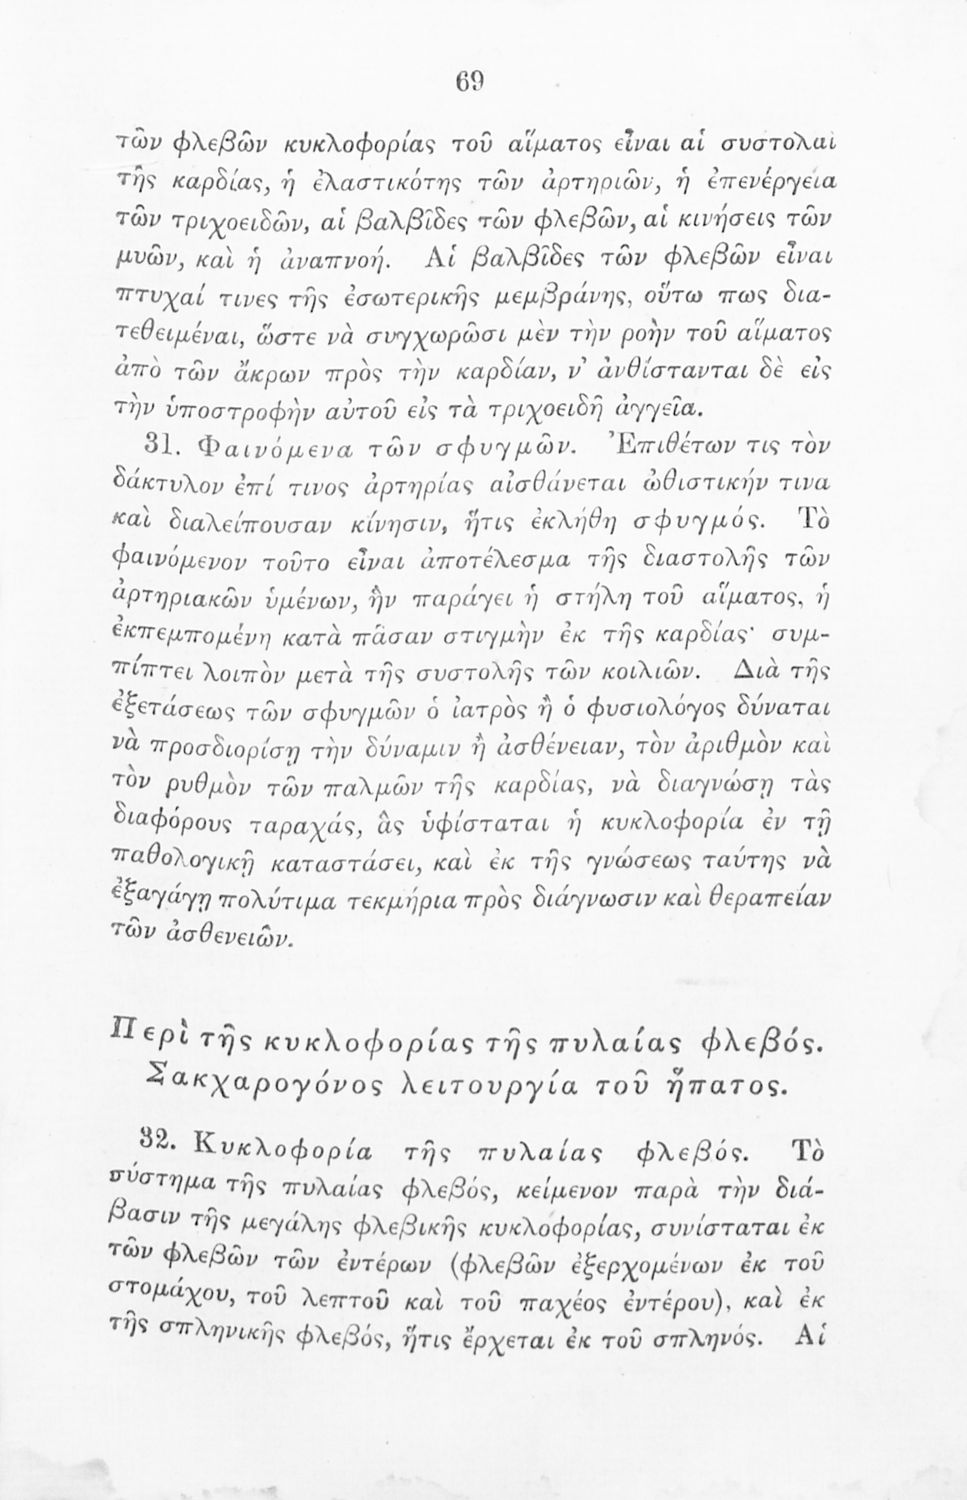 69
τῶν φλεβῶν κυκλοφορίας τοῦ αἵματος εἶναι αἱ συστολαὶ
τῆς καρδίας, ἡ ἐλαστικότης τῶν ἀρτηριῶν, ἡ ἐπενέργεια
τῶν τριχοειδῶν, αἱ βαλβῖδες τῶν φλεβῶν, αἱ κινήσεις τῶν
μυῶν, καὶ ἡ ἀναπνοή. Αἱ βαλβῖδες τῶν φλεβῶν εἶναι
πτυχαί τινες τῆς ἐσωτερικῆς μεμβράνης, οὕτω πως δια-
τεθειμέναι, ὥστε νὰ συγχωρῶσι μὲν τὴν ροὴν τοῦ αἵματος
ἀπὸ τῶν ἄκρων πρὸς τὴν καρδίαν, ν᾽ ἀνθίστανται δὲ εἰς
τὴν ὑποστροφὴν αὐτοῦ εἰς τὰ τριχοειδῆ ἀγγεῖα.
31. Φαινόμενα τῶν σφυγμῶν. Ἐπιθέτων τις τὸν
δάκτυλον ἐπί τινος ἀρτηρίας αἰσθάνεται ὠθιστικήν τινα
καὶ διαλείπουσαν κίνησιν, ἥτις ἐκλήθη σφυγμός. Τὸ
φαινόμενον τοῦτο εἶναι ἀποτέλεσμα τῆς διαστολῆς τῶν
ἀρτηριακῶν ὑμένων, ἣν παράγει ἡ στήλη τοῦ αἵματος, ἡ
ἐκπεμπομένη κατὰ πᾶσαν στιγμὴν ἐκ τῆς καρδίας· συμ-
πίπτει λοιπὸν μετὰ τῆς συστολῆς τῶν κοιλιῶν. Διὰ τῆς
ἐξετάσεως τῶν σφυγμῶν ὁ ἰατρὸς ἢ ὁ φυσιολόγος δύναται
νὰ προσδιορίσῃ τὴν δύναμιν ἢ ἀσθένειαν, τὸν ἀριθμὸν καὶ
τὸν ρυθμὸν τῶν παλμῶν τῆς καρδίας, νὰ διαγνώσῃ τὰς
διαφόρους ταραχάς, ἃς ὑφίσταται ἡ κυκλοφορία ἐν τῇ
παθολογικῇ καταστάσει, καὶ ἐκ τῆς γνώσεως ταύτης νὰ
ἐξαγάγῃ πολύτιμα τεκμήρια πρὸς διάγνωσιν καὶ θεραπείαν
τῶν ἀσθενειῶν.
Περὶ τῆς κυκλοφορίας τῆς πυλαίας φλεβός.
Σακχαρογόνος λειτουργία τοῦ ἥπατος.
32. Κυκλοφορία τῆς πυλαίας φλεβός. Τὸ
σύστημα τῆς πυλαίας φλεβός, κείμενον παρὰ τὴν διά-
βασιν τῆς μεγάλης φλεβικῆς κυκλοφορίας, συνίσταται ἐκ
τῶν φλεβῶν τῶν ἐντέρων (φλεβῶν ἐξερχομένων ἐκ τοῦ
στομάχου, τοῦ λεπτοῦ καὶ τοῦ παχέος ἐντέρου), καὶ ἐκ
τῆς σπληνικῆς φλεβός, ἥτις ἔρχεται ἐκ τοῦ σπληνός. Αἱ